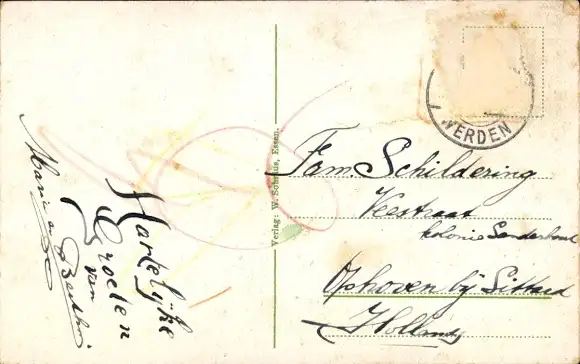 Hartelijke
Groeten
van
Marie en
Verlag: W. Schmaus, Essen.
WERDEN
Fam Schildering
Veestraat
kolonie
Ophoven bij Sittard
Holland